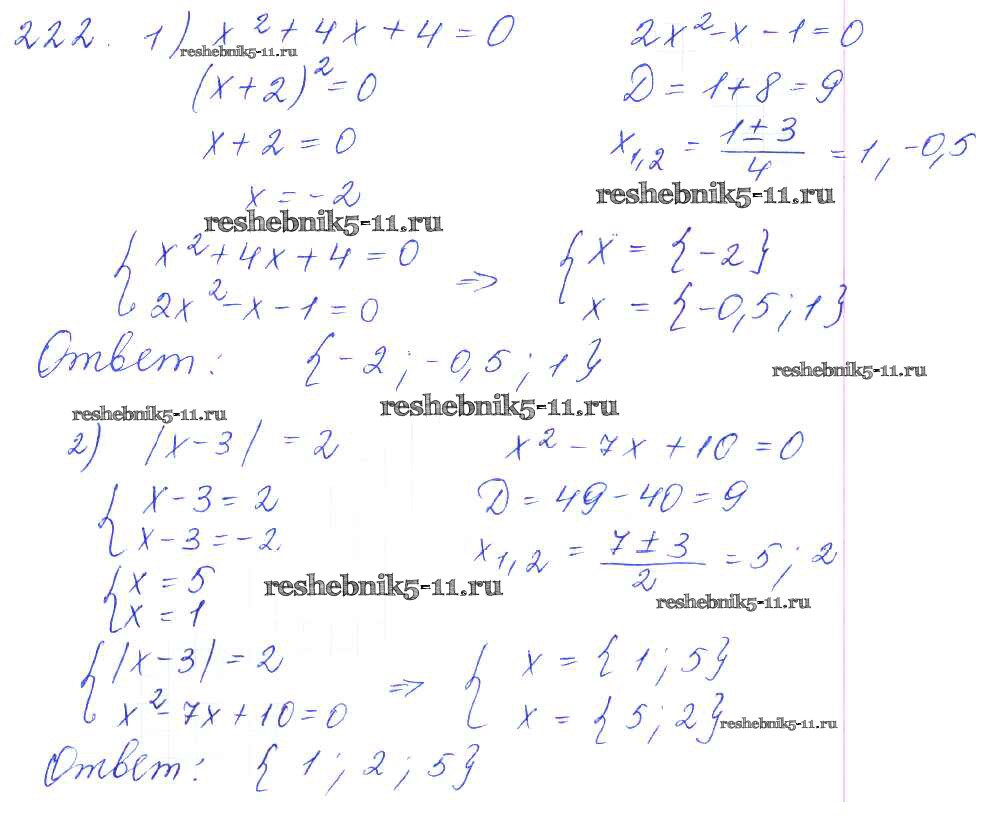 222. 1) x² + 4x + 4 = 0
reshebnik5-11.ru
(x + 2)² = 0
x + 2 = 0
x = -2
2x² - x - 1 = 0
D = 1 + 8 = 9
x₁,₂ = (1 ± 3)/4 = 1, -0,5
reshebnik5-11.ru
reshebnik5-11.ru
{ x² + 4x + 4 = 0
2x² - x - 1 = 0
=> { x = {-2}
x = {-0,5; 1}
Ответ: {-2; -0,5; 1}
reshebnik5-11.ru
reshebnik5-11.ru
reshebnik5-11.ru
2) |x - 3| = 2
{ x - 3 = 2
x - 3 = -2
{ x = 5
x = 1
x² - 7x + 10 = 0
D = 49 - 40 = 9
x₁,₂ = (7 ± 3)/2 = 5; 2
reshebnik5-11.ru
reshebnik5-11.ru
{ |x - 3| = 2
x² - 7x + 10 = 0
=> { x = {1; 5}
x = {5; 2}
reshebnik5-11.ru
Ответ: {1; 2; 5}